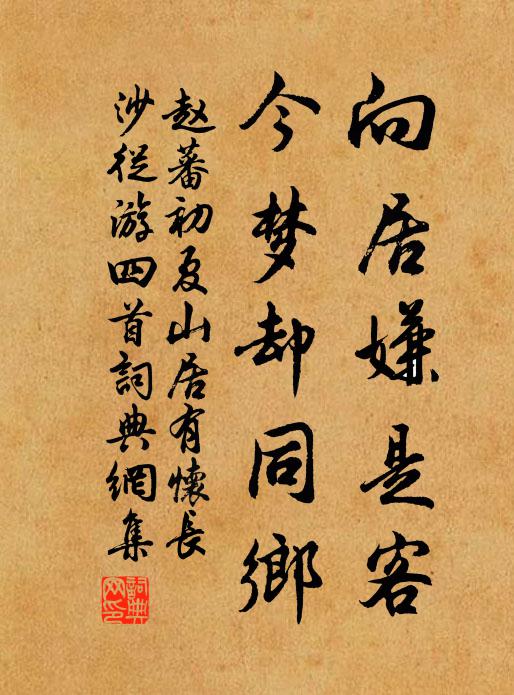 向居嫌是客
今梦却同鄉
赵蕃初夏山居有懷長
沙從游四首詞典網集
詞典网印